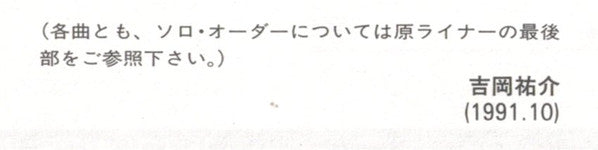 (各曲とも、ソロ・オーダーについては原ライナーの最後
部をご参照下さい。)
吉岡祐介
(1991.10)